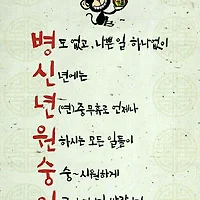 병도 없고, 나쁜 일 하나없이
신년에는
년(연)중무휴로 언제나
원하시는 모든 일들이
숭숭~시원하게